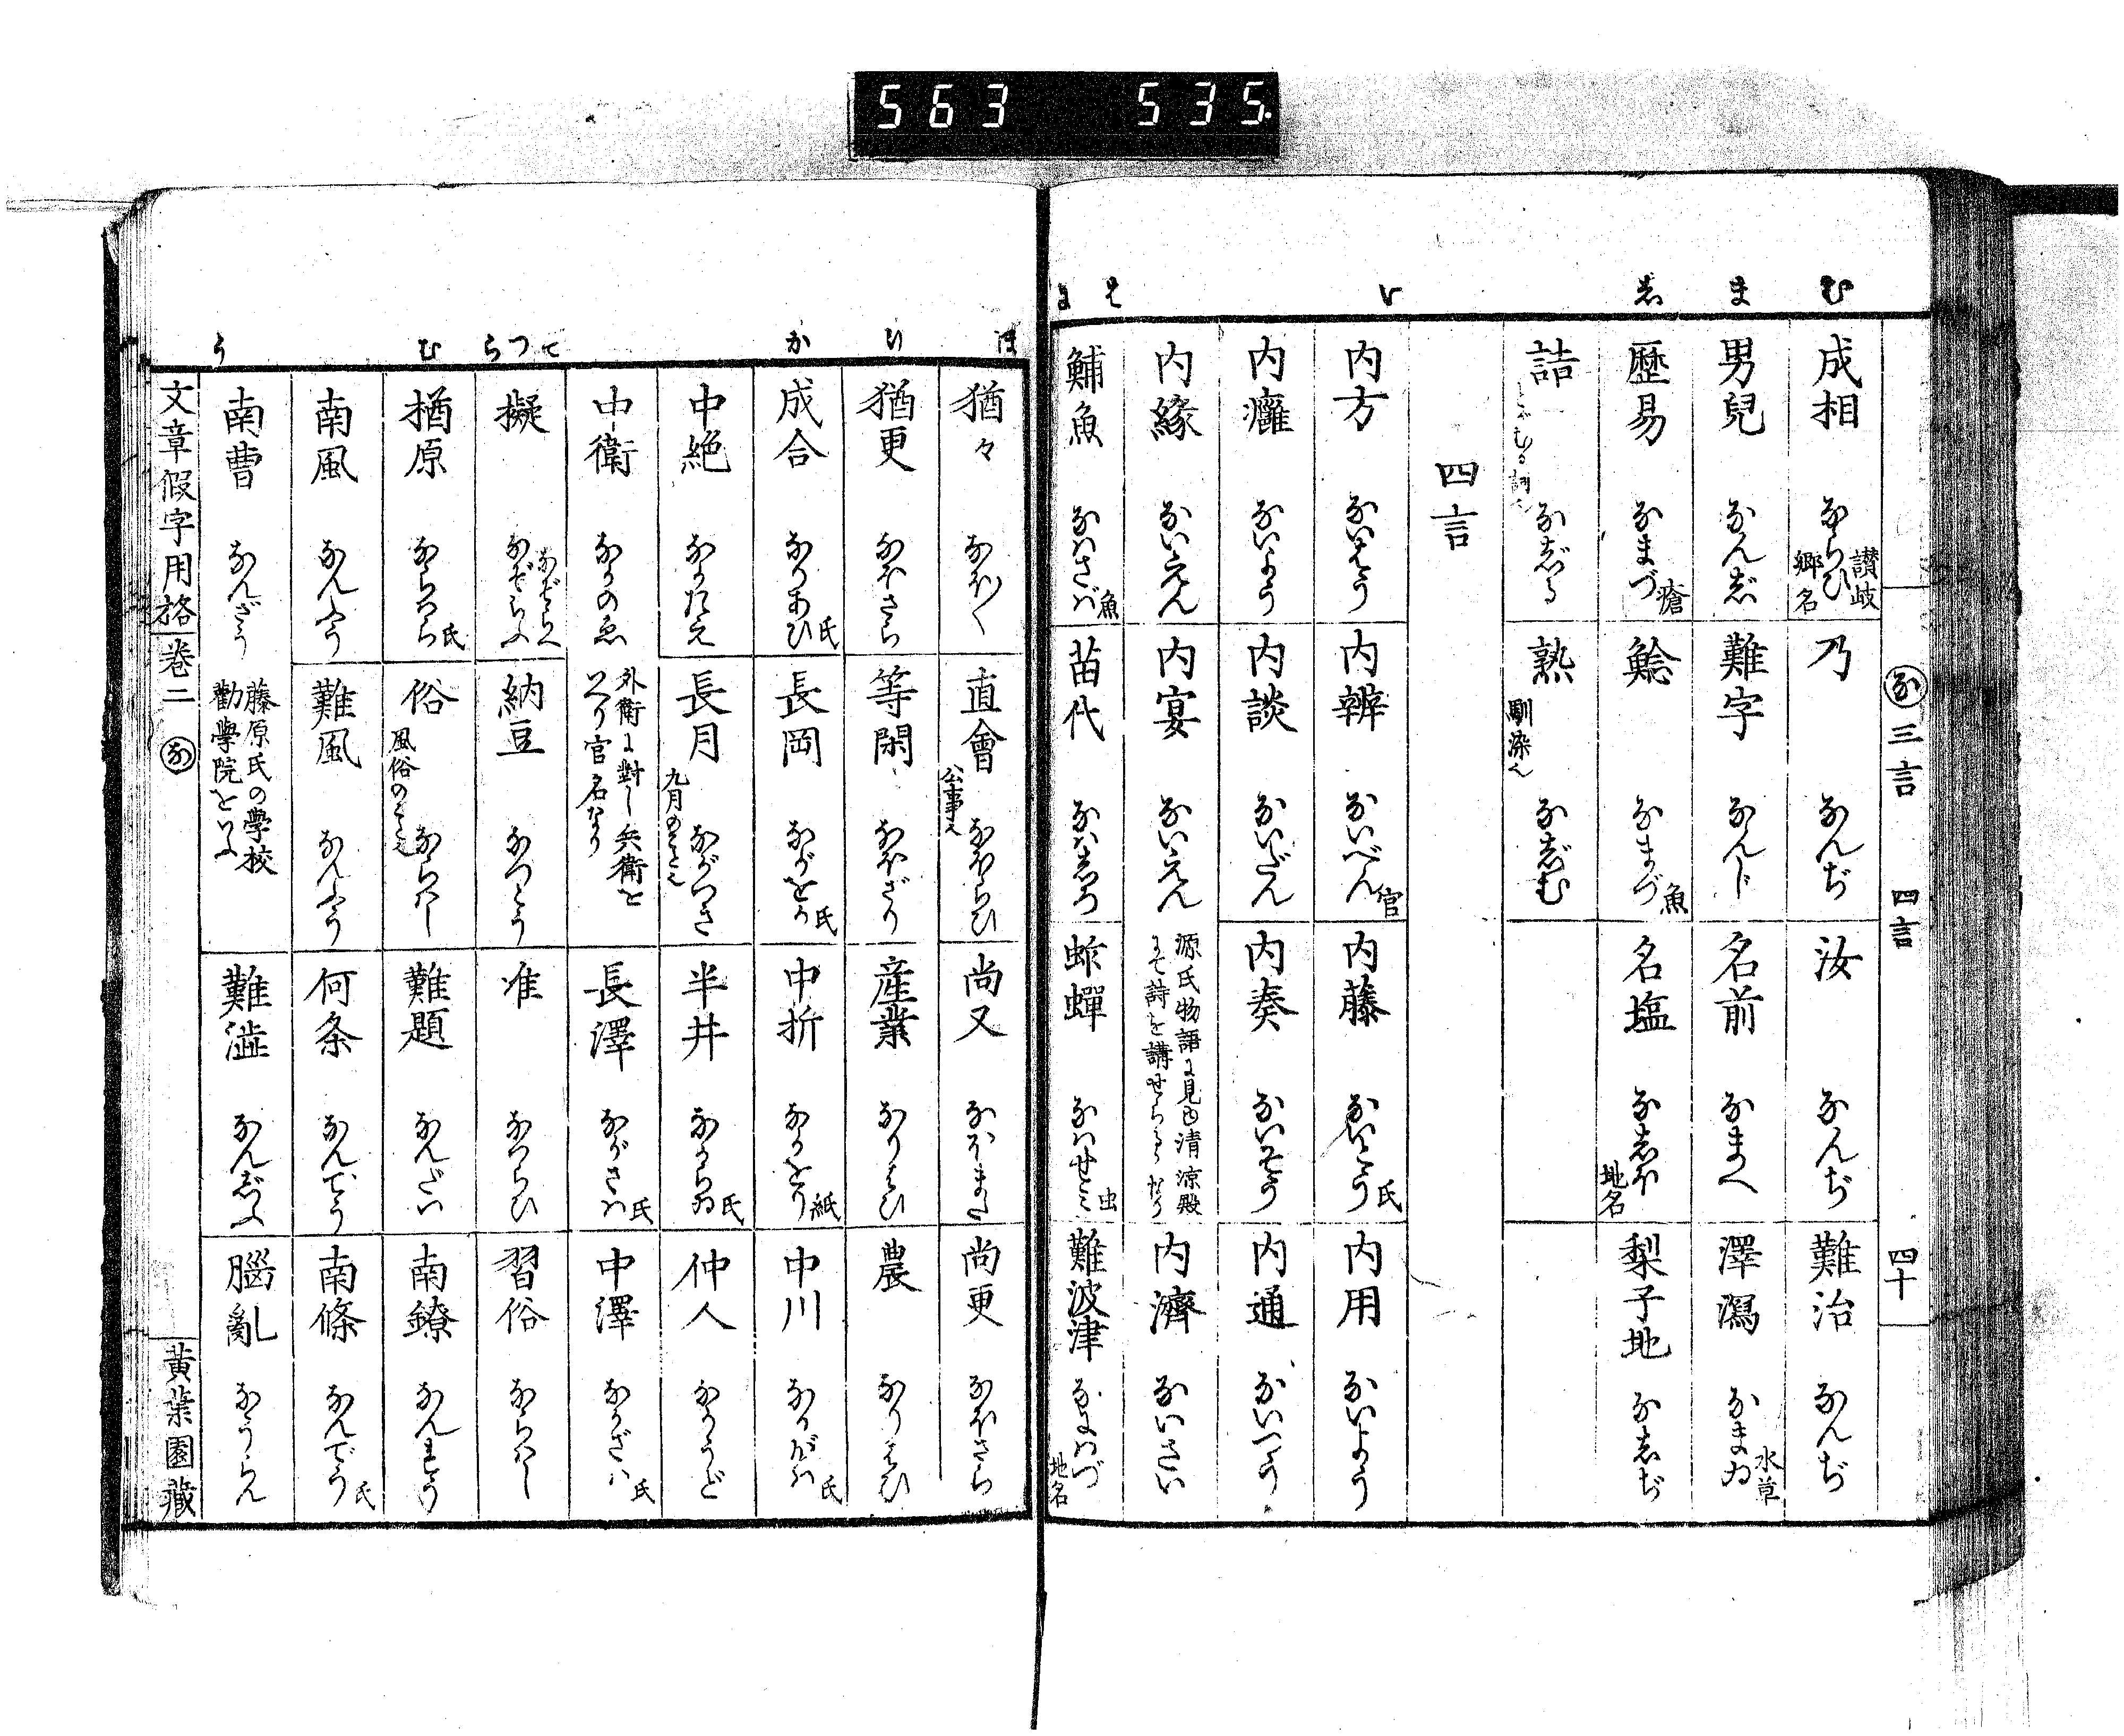 563 535
む
ま
志
い
な 三言 四言 四十
成相 ならひ 讃岐郷名
乃 なんぢ
汝 なんぢ
難治 なんぢ
男兒 なん志
難字 なんじ
名前 なまへ
澤瀉 なまゐ 水草
歴易 なまづ 瘡
鯰 なまづ 魚
名塩 な志ほ 地名
梨子地 な志ぢ
詰 な志゛る
熟 馴染也 な志゛む
四言
内方 ないはう
内辨 ないべん 官
内藤 ないとう 氏
内用 ないよう
内癰 ないよう
内談 ないだん
内奏 ないそう
内通 ないつう
内縁 ないえん
内宴 ないえん 源氏物語に見ゆ清涼殿
にて詩を講せらるゝなり
内濟 ないさい
鯆魚 なはさば 魚
苗代 なは志ろ
蚱蟬 なはせミ 虫
難波津 なにはづ 地名
ほ
り
か
て
つ
ら
む
う
猶々 なほ〱
直會 公事也 なほらひ
尚又 なほまた
尚更 なほさら
猶更 なほさら
等閑 なほざり
産業 なりはひ
農 なりはひ
成合 なりあひ 氏
長岡 ながをか 氏
中折 なかをり 紙
中川 なかがは 氏
中絶 なかたえ
長月 九月のことなり ながつき
半井 なからゐ 氏
仲人 なかうど
中衛 なかのゑ 外衛に對し兵衛を
いへり官名なり
長澤 ながさは 氏
中澤 なかざは 氏
擬 なぞらへ なぞらふ
納豆 なつとう
准 なつらひ
習俗 ならはし
楢原 ならはら 氏
俗 風俗のことなり ならはし
難題 なんだい
南鐐 なんれう
南風 なんふう
難風 なんふう
何条 なんでう
南條 なんでう 氏
南曹 なんざう 藤原氏の學校
勸學院をいふ
難澁 なん志゛ふ
腦亂 なうらん
文章假字用格 巻二 な 黄葉園藏